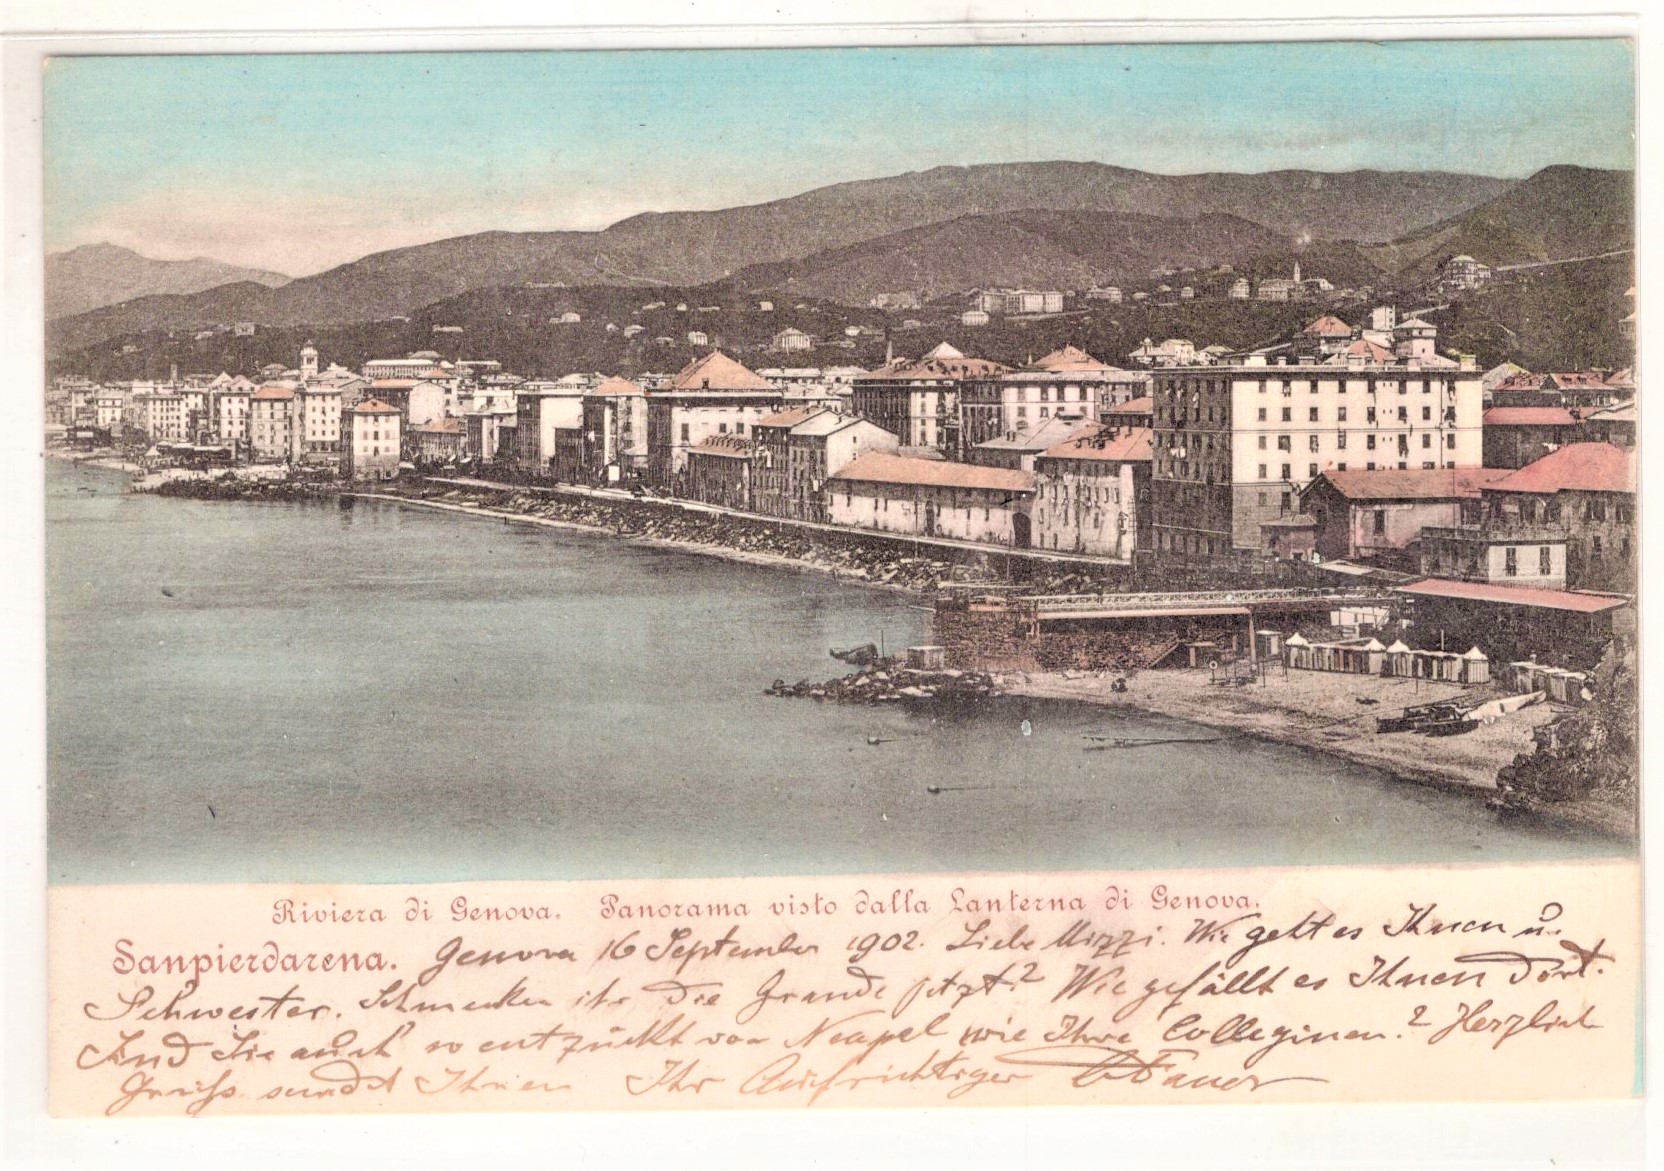 Riviera di Genova. Panorama visto dalla Lanterna di Genova.
Sanpierdarena. Genova 16 September 1902. Liebe Mizzi. Wie geht es Ihnen u.
Schwester. Schmecken ihr die Grande jetzt? Wie gefällt es Ihnen dort.
Sind Sie auch so entzückt von Neapel wie Ihre Colleginen? Herzlich
Gruß sendet Ihnen Ihr Aufrichtiger